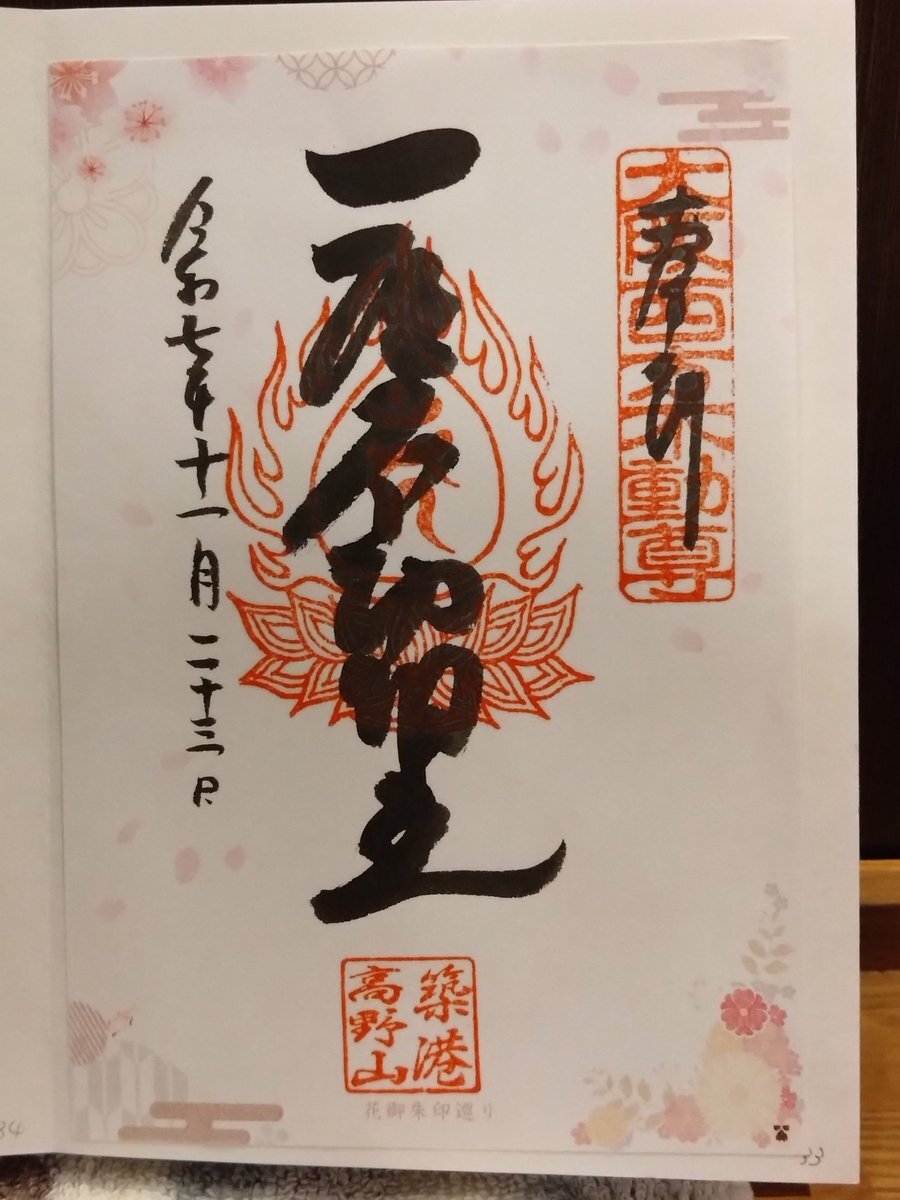 奉拝
大阪 不動尊
一願不動明王
令和七年十一月二十三日
築港
高野山
花御朱印巡り
33